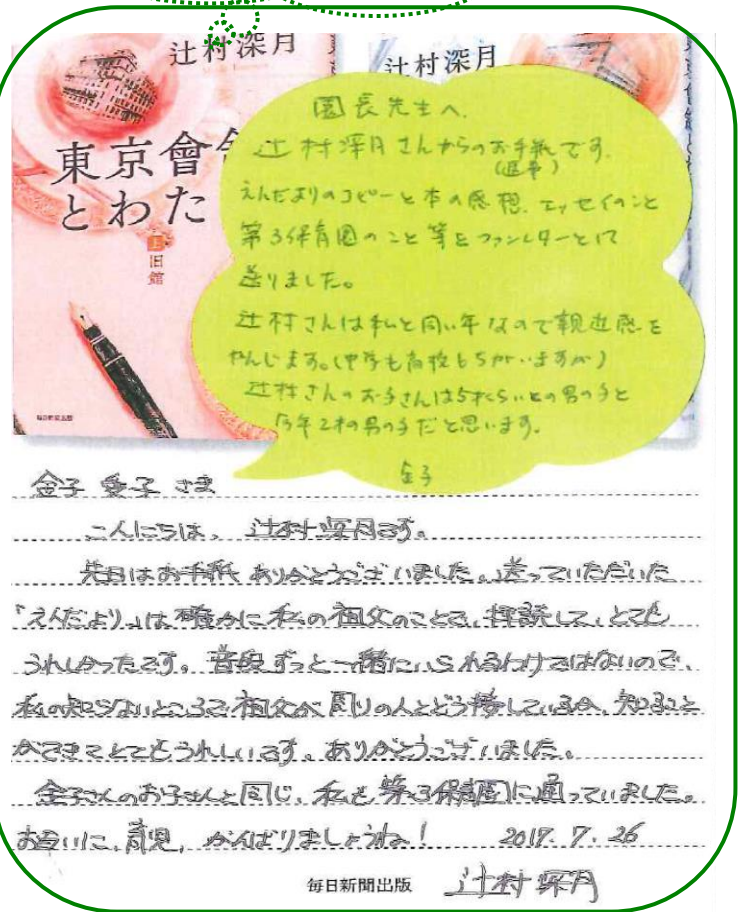 辻村深月
辻村深月
東京會舘
とわた
上
旧館
毎日新聞出版
園長先生へ.
辻村深月さんからのお手紙です.
(返事)
えんだよりのコピーと本の感想、エッセイのこと
第3保育園のこと等をファンレターとして
送りました。
辻村さんは私と同い年なので親近感を
かんじます。(中学も高校もちがいますが)
辻村さんのお子さんは5才くらいの男の子と
今年2才の男の子だと思います。
金子
金子 愛子 さま
こんにちは、辻村深月です。
先日はお手紙ありがとうございました。送っていただいた
「えんだより」は確かに私の祖父のことで、拝読して、とても
うれしかったです。普段ずっと一緒にいられるわけではないので、
私の知らないところで祖父が周りの人とどう接しているか、知ること
ができてとてもうれしいです。ありがとうございました。
金子さんのお子さんと同じ、私も第3保育園に通っていました。
お互いに、育児、がんばりましょうね! 2017.7.26
毎日新聞出版 辻村深月